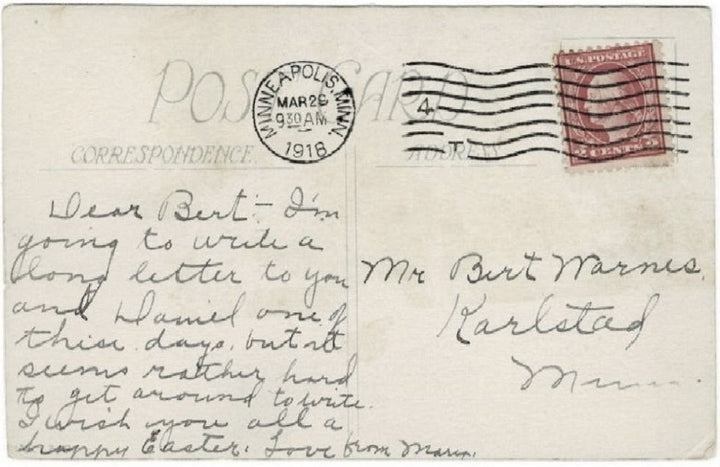 POST CARD
CORRESPONDENCE
ADDRESS
MINNEAPOLIS, MINN.
MAR 29
9 30 AM
1918
4
U.S. POSTAGE
2 CENTS 2
Dear Bert - I'm
going to write a
long letter to you
and Daniel one of
these days, but it
seems rather hard
to get around to write.
I wish you all a
happy Easter. Love from
Mr Bert Warnes,
Karlstad
Minn.